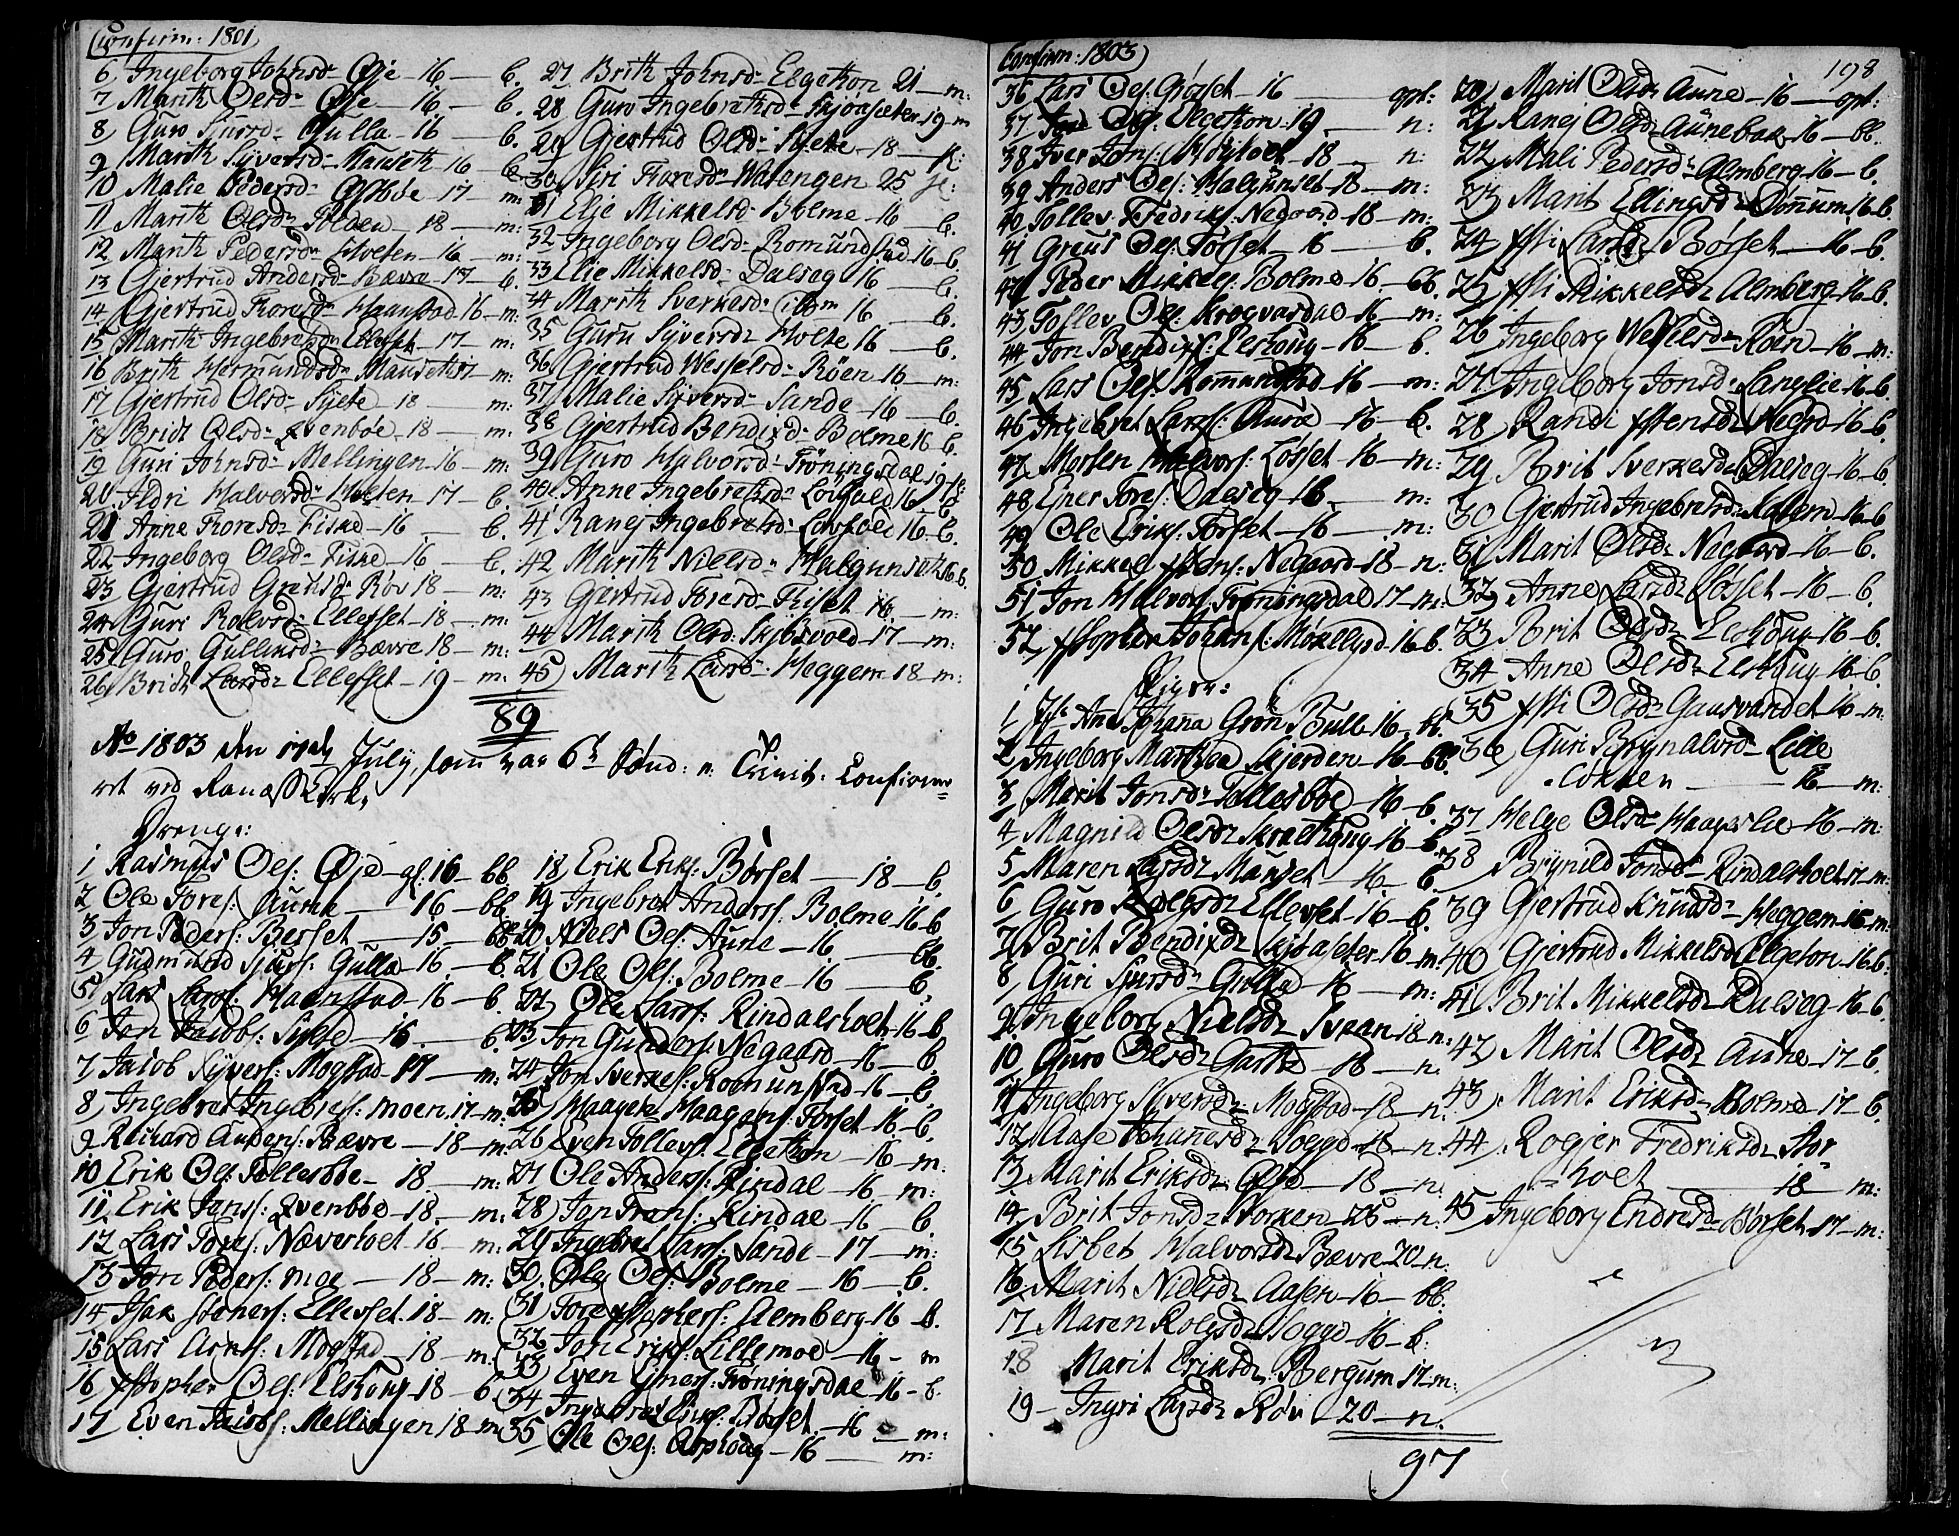 Confirm: 1801
6 Ingeborg Johnsd: Øje 16 — b.
7 Marith Olsd: Øje — 16 — b.
8 Guro Sjursd: Gulla — 16 — b.
9 Marith Syversd: Mauseth 16 — b.
10 Malie Pedersd: 17 — m:
11 Marith Olsd: Solden — 18 — m:
12 Marith Pedersd: Hveten — 16 — m:
13 Gjertrud Andersd: Bævre 17 — b.
14 Gjertrud Toresd: Haanstad 16 — m:
15 Marith Ingebretsd: Elleset — 17 — m:
16 Brith Hermundsd: Mauseth 17 — m:
17 Giertrud Olsd: Sylte 18 — m:
18 Bridt Olsd: Qvenbøe — 18 — m:
19 Guri Johnsd: Mellingen — 16 — m:
20 Ildri Halvorsd: Hveten 17 — b.
21 Anne Toresd: Fiske — 16 — b.
22 Ingeborg Olsd: Fiske — 16 — b.
23 Gjertrud Greusd: Røv 18 — m:
24 Guri Rolvsd: Ellefset — 18 — m:
25 Guro Gullicsd: Bævre 18 — m:
26 Bridt Larsd: Ellefset — 19 — m:
27 Brith Johnsd: Elgetton 21 — m:
28 Guro Ingebrethsd: Skjoasæter 19 — m
29 Gjertrud Olsd: Sylte — 18 — 
30 Siri Toresd: Watengen 25
31 Elje Mikkelsd: Bolme — 16 — b.
32 Ingeborg Olsd: Romundstad 16 — b
33 Elie Mikkelsd: Dalseg 16 — b.
34 Marith Sverkesd: 16 — b.
35 Guru Syversd: Holte 16 — b.
36 Gjertrud Wesselsd: Røen 16 — m:
37 Malie Syversd: Sande — 16 — b.
38 Gjertrud Bendixd: Bolme 16 b.
39 Guro Halvorsd: Frøningsdal 19
40 Anne Ingebrethsd: Løsfold 16 b
41 Ranej Ingebrethsd: Løsfold 16 — b.
42 Marith Nielsd: Halgunset 16 b.
43 Gjertrud Toresd: Fiset 16. — m:
44 Marith Olsd: 17 — m:
45 Marith Larsd: Heggem 18 — m:
89
Ao 1803 den 17de July, som var 6te Sønd: n: Trinit: Confirme-
ret ved Ranæss Kirke
Drenge:
1 Rasmus Ols: Øje — gl: 16 — bb
2 Ole Tores: Aune — 16 — bb
3 Jon Peders: Berset — 15 — bb
4 Gudmund Sjurs: Gulla — 16 — b.
5 Lars Larss: Haanstad — 16 — b.
6 Jon Jacobs: Sylte — 16. — b.
7 Jacob Syvers: Mogstad 17 — m:
8 Ingebret Ingebrets: Moen 17 — m:
9 Richard Anders: Bævre — 18 — m:
10 Erik Ols: Tellesbøe — 18 — m:
11 Erik Jons: Qvenbøe — 18. — m:
12 Lars Tores: Næverholt 16 — m:
13 Jon Peders: Moe — 18 — m:
14 Isak Steners: Ellevset 18 — m:
15 Lars Arns: Mogstad — 18 — m:
16 Xstopher Ols: Elshoug 18 — b
17 Even Jacobs: Mellingen 18 m:
18 Erik Eriks: Børset — 18 — b.
19 Ingebret Anderss: Bolme 16 — b
20 Niels Ols: Aune — 16 — bb.
21 Ole Ols: Bolme — 16 — b
22 Ole Larss: Rindalsholt — 16 — b
23 Jon Gunders: Negaard — 16 — b
24 Jon Sverkes: Romunstad — 16 — b.
25 Haagen Haagens: Torset 16 — b.
26 Even Tollevs: Elgetton — 16 — m:
27 Ole Anders: Rindal — 16. — m:
28 Jon Trons: Rindal — 16 — b
29 Ingebret Larss: Sande — 17 — m:
30. Ole Ols: Bolme — 16 — b.
31 Tore Xstophers: Almberg 16 — b.
32 Jon Eriks: Lillemoe — 16 — m
33 Even Einers: Frøningsdal — 16 — b.
34 Ingebret Eriks: Børset — 16 — m:
35 Ole Ols: Aashoug — 16 — m:
Confirm: 1803
198
36 Lars Ols: Grøset — 16 — opt:
37 Ols: Elgetton — 19 — n:
38 Iver Jons: Høyholt — 18 — n:
39 Anders Ols: Halgunset — 18 — m:
40 Tollev Fredriks: Negaard — 18 — m:
41 Greus Ols: Torset — 16 — b.
42 Peder Mikkels: Bolme 16. — bb.
43 Tollev Ols: Krogvasdal 16 — m:
44 Jon Bendixs: Elshoug — 18 — b.
45 Lars Ols: Romundstad 16 — m:
46 Ingebret Larss: Aune — 16 — b.
47 Morten Halvors: Løsset — 16 — m:
48 Einer Tores: Dalseg — 16 — m:
49 Ole Eriks: Torset — 16 — m:
50 Mikkel Xstens: Negaard — 18 — n:
51 Jon Halvors: Frøningsdal 17 — m:
52 Xstopher Johans: 16 b.
Piger:
1 Jfr. Ane Johanna Grøn Bull — 16 — bb.
2 Ingeborg Marthea Skjerden — 16 — bb.
3 Marit Jonsd: Tellesbøe — 16 — b.
4 Magnild Olsd: 16 — b
5 Maren Larsd: Mauset — 16 — b.
6 Guro Rolvsd: Ellevset — 16 — b.
7 Brit Bendixd: Skjøasæter 16 — m:
8 Guri Sjursd: Gulla — 16 — m:
9 Ingeborg Nielsd: Svean 18 — n:
10 Guro Olsd: — 18 — n.
11 Ingeborg Syversd: Mogstad — 18 — n.
12 Aase Johanesd: Sogge — 18 — n.
13 Marit Eriksd: Øje — 18 — n.
14 Brit Jonsd: — n.
15 Lisbet Halvorsd: Bævre 20 — n.
16 Marit Nielsd: Aasen — 16 — bb.
17 Maren Rolvsd: Sogge — 16 — b:
18 Marit Eriksd: Bergum 17 — m:
19 — Ingri Larsd: Røv — 20 — n.
20 Marit Olsd: Aune — 16 — opt:
21 Ranej Olsd: Aunebak 16 — bb.
22 Mali Pedersd: Almberg 16 — b.
23 Marit Ellingsd: Dønnum 16 b.
24 Xsti Larsd: Børset — 16 — b.
25 Xsti Mikkelsd: Almberg — 16 — b.
26 Ingeborg Wesselsd: Røen — 16 — m:
27 Ingeborg Jonsd: Langlie — 16 — b.
28 Randi Xstensd: Negrd — 16 — b.
29 Brit Sverkesd: Dalseg — 16 — b.
30 Gjertrud Ingebretsd: — 16 — b
31 Marit Olsd: Negaard — 16 — b.
32 Anne Larsd: Løsset — 16 — b.
33 Brit Olsd: Elshoug — 16 — b.
34 Anne Olsd: Elshoug 16 — b.
35 Xsti Olsd: Gaasvandet 16 — m:
36 Guri Brynalvsd: Lille
Løkken — 16 — m:
37 Helge Olsd: Haagaslie — 16 — m:
38 Brynild Jonsd: Rindalsholt 17 — m:
39 Gjertrud Knudsd: Heggem 16 m:
40 Gjertrud Mikkelsd: Elgeton 16 b.
41 Brit Mikkelsd: Dalseg 16 b.
42 Marit Olsd: Aune — 17 — b.
43 Marit Eriksd: Bolme — 17 — b.
44 Rogjer Fredriksd: Stor
holt — 18 — m:
45 Ingeborg Endresd: Børset — 17 — m:
97